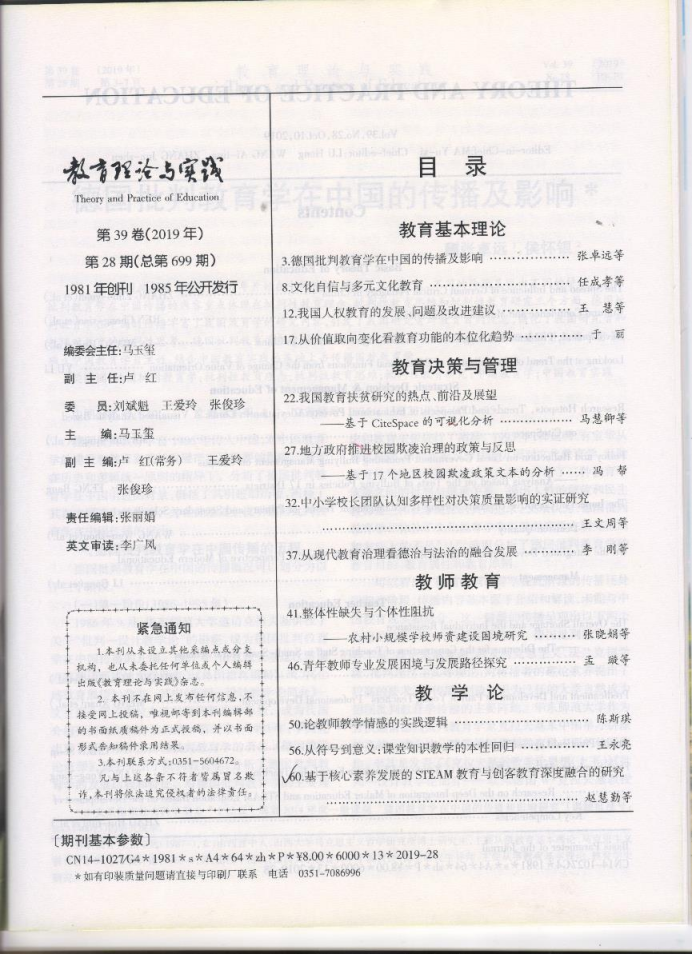 教育理论与实践
Theory and Practice of Education
第 39 卷(2019 年)
第 28 期(总第 699 期)
1981 年创刊 1985 年公开发行
编委会主任:马玉玺
副 主 任:卢 红
委 员:刘斌魁 王爱玲 张俊珍
主 编:马玉玺
副 主 编:卢 红(常务) 王爱玲
张俊珍
责任编辑:张丽娟
英文审读:李广凤
紧急通知
1.本刊从未设立其他采编点或分支
机构,也从未委托任何单位或个人编辑
出版《教育理论与实践》杂志。
2. 本刊不在网上发布任何信息,不
接受网上投稿,唯视邮寄到本刊编辑部
的书面纸质稿件为正式投稿,并以书面
形式告知稿件录用结果。
3.本刊联系方式:0351-5604672。
凡与上述各条不符者皆属冒名欺
诈,本刊将依法追究侵权者的法律责任。
目 录
教育基本理论
3.德国批判教育学在中国的传播及影响 ……………… 张卓远等
8.文化自信与多元文化教育 ……………………… 任成孝等
12.我国人权教育的发展、问题及改进建议 …………… 王 慧等
17.从价值取向变化看教育功能的本位化趋势 ………… 于 丽
教育决策与管理
22.我国教育扶贫研究的热点、前沿及展望
——基于 CiteSpace 的可视化分析 ……………… 马慧卿等
27.地方政府推进校园欺凌治理的政策与反思
——基于 17 个地区校园欺凌政策文本的分析 …… 冯 帮
32.中小学校长团队认知多样性对决策质量影响的实证研究
……………………………………………… 王文周等
37.从现代教育治理看德治与法治的融合发展 ………… 李 刚等
教师教育
41.整体性缺失与个体性阻抗
——农村小规模学校师资建设困境研究 ………… 张晓娟等
46.青年教师专业发展困境与发展路径探究 …………… 孟 璇等
教 学 论
50.论教师教学情感的实践逻辑 …………………… 陈斯琪
56.从符号到意义:课堂知识教学的本性回归 ………… 王永亮
60.基于核心素养发展的 STEAM 教育与创客教育深度融合的研究
……………………………………………… 赵慧勤等
〔期刊基本参数〕
CN14-1027/G4＊1981＊s＊A4＊64＊zh＊P＊¥8.00＊6000＊13＊2019-28
＊如有印装质量问题请直接与印刷厂联系 电话 0351-7086996